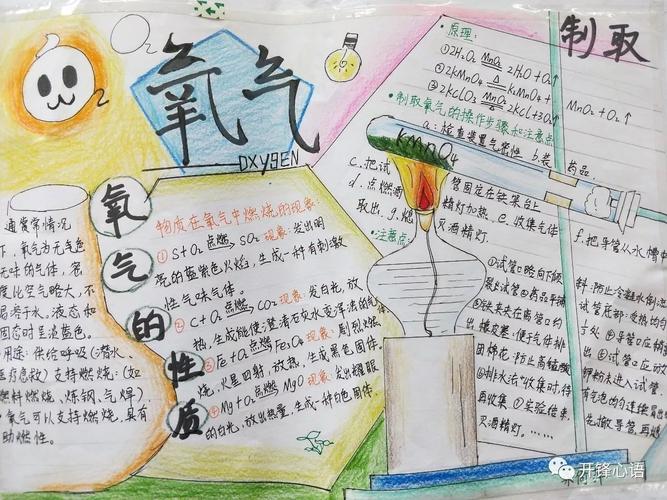 O₂
氧气
OXYGEN
制取
·原理:
①2H₂O₂ MnO₂ 2H₂O+O₂↑
②2KMnO₄ △ K₂MnO₄+MnO₂+O₂↑
③2KClO₃ MnO₂ △ 2KCl+3O₂↑
·制取氧气的操作步骤和注意点
a.检查装置气密性 b.装药品
c.把试管固定在铁架台上
d.点燃酒精灯加热 e.收集气体
f.把导管从水槽中
取出 g.熄灭酒精灯.
KMnO₄
·注意点:
①试管口略向下倾斜:防止冷
②药品平铺试管底部:受热均匀
③铁夹夹在离管口约1/3处
④导管口应稍
橡皮塞:便于气体排出
⑤试管口应
团棉花:防止高锰酸钾粉末进入试管
⑥排水法收集时,待有气泡均匀连续
再收集 ⑦实验结束,先撤导管,再熄
灭酒精灯。……
氧气的性质
通常情况
下,氧气为无色
无味的气体,密
度比空气略大,不
易溶于水,液态和
固态时呈淡蓝色。
用途:供给呼吸(潜水、
医疗急救)支持燃烧:(如
燃料燃烧,炼钢,气焊)。
氧气可以支持燃烧,具有
助燃性。
物质在氧气中燃烧的现象:
①S+O₂ 点燃 SO₂ 现象:发出明
亮的蓝紫色火焰,生成一种有刺激
性气味气体。
②C+O₂ 点燃 CO₂ 现象:发白光,放
热,生成能使澄清石灰水变浑浊的气体
③Fe+O₂ 点燃 Fe₃O₄ 现象:剧烈燃
烧,火星四射,放热,生成黑色固体。
④Mg+O₂ 点燃 MgO 现象:发出耀眼
的白光,放出热量,生成一种白色固体。
开锋心语